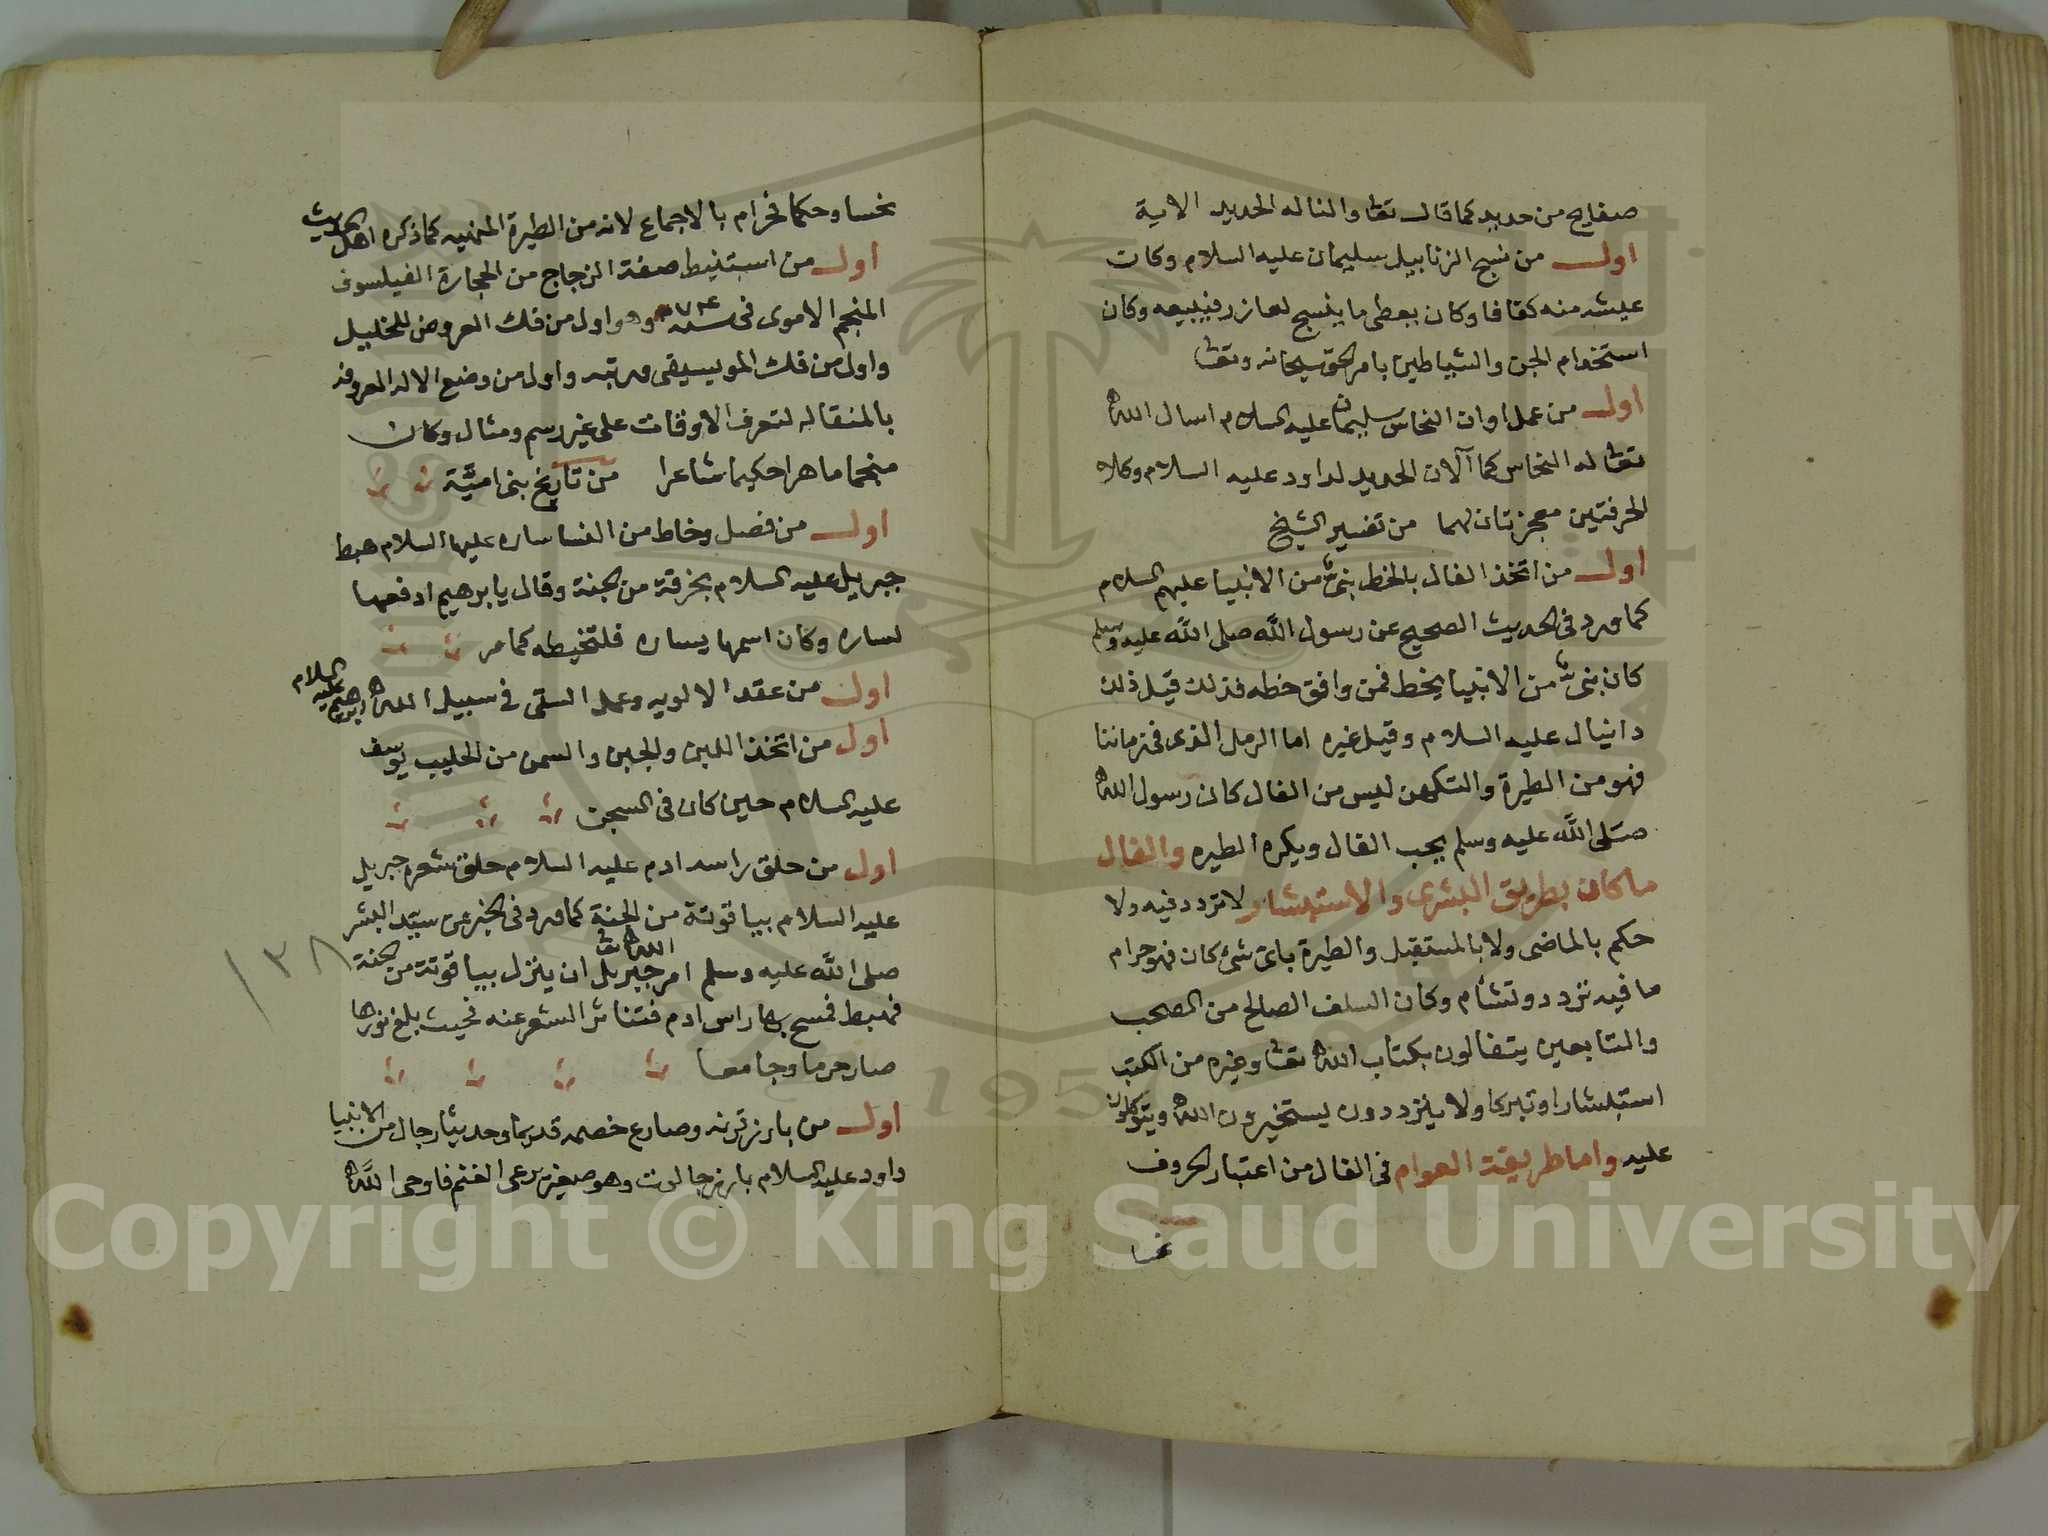 صفايح من حديد كما قال تعا والنا له الحديد الاية
اول من نسج الزنابيل سليمان عليه السلام وكات
عيشه منه كفافا وكان يعطى ما ينسج لعازر فيبيعه وكان
استخدام الجن والشياطين بامر الحق سبحانه وتعا
اول من عمل اوان النحاس سليمان عليه السلام اسال الله
تعا له النحاس كما آلان الحديد لداود عليه السلام وكلا
الحرفتين معجزتان لهما من تفسير الشيخ
اول من اتخذ الفال بالخط نبى من الانبيا عليهم السلام
كما ورد فى الحديث الصحيح عن رسول الله صلى الله عليه وسلم
كان نبى من الانبيا يخط فمن وافق خطه فذلك قيل ذلك
دانيال عليه السلام وقيل غيره اما الرمل الذى فى زماننا
فهو من الطيرة والتكهن ليس من الفال كان رسول الله
صلى الله عليه وسلم يحب الفال ويكره الطيره والفال
ما كان بطريق البشرى والاستبشار لا تردد فيه ولا
حكم بالماضى ولا بالمستقبل والطيرة باى شئ كان فهو حرام
ما فيه تردد وتشأم وكان السلف الصالح من الصحب
والتابعين يتفالون بكتاب الله تعا وغيره من الكتب
استبشارا وتبركا ولا يترددون يستخيرون الله ويتوكلون
عليه واما طريقة العوام فى الفال من اعتبار الحروف
نحسا
نحسا وحكما فحرام بالاجماع لانه من الطيرة المنهيه كما ذكره اهل الحديث
اول من استنبط صفة الزجاج من الحجارة الفيلسوف
المنجم الاموى فى سنه واول من فك العروض للخليل
واول من فك الموسيقى ورتبه واول من وضع الاله المعروفه
بالمنقاله لتعرف الاوقات على غير رسم ومثال وكان
منجما ماهرا حكيما شاعرا من تاريخ بنى امية
اول من فصل وخاط من النسا ساره عليها السلام هبط
جبريل عليه السلام بخرقة من الجنة وقال يا برهيم ادفعها
لساره وكان اسمها يساره فلتخيطه كما مر
اول من عقد الالويه وعمل السقى فى سبيل الله ابرهيم عليه السلام
اول من اتخذ اللبن والجبن والسمن من الحليب يوسف
عليه السلام حين كان فى السجن
اول من حلق راسه ادم عليه السلام حلق شعره جبريل
عليه السلام بياقوتة من الجنة كما ورد فى الخبر عن سيد البشر
صلى الله عليه وسلم امر الله تعا جبريل ان ينزل بياقوتة من الجنة
فهبط فمسح بها راس ادم فتناثر الشعر عنه فحيث بلغ نورها
صار حرما وجامعا
١٣٨
اول من بارز قرنه وصارع خصمه قديما وحديثا رجال من الانبيا
داود عليه السلام بارز جالوت وهو صغير يرعى الغنم فاوحى الله
Copyright © King Saud University
1957